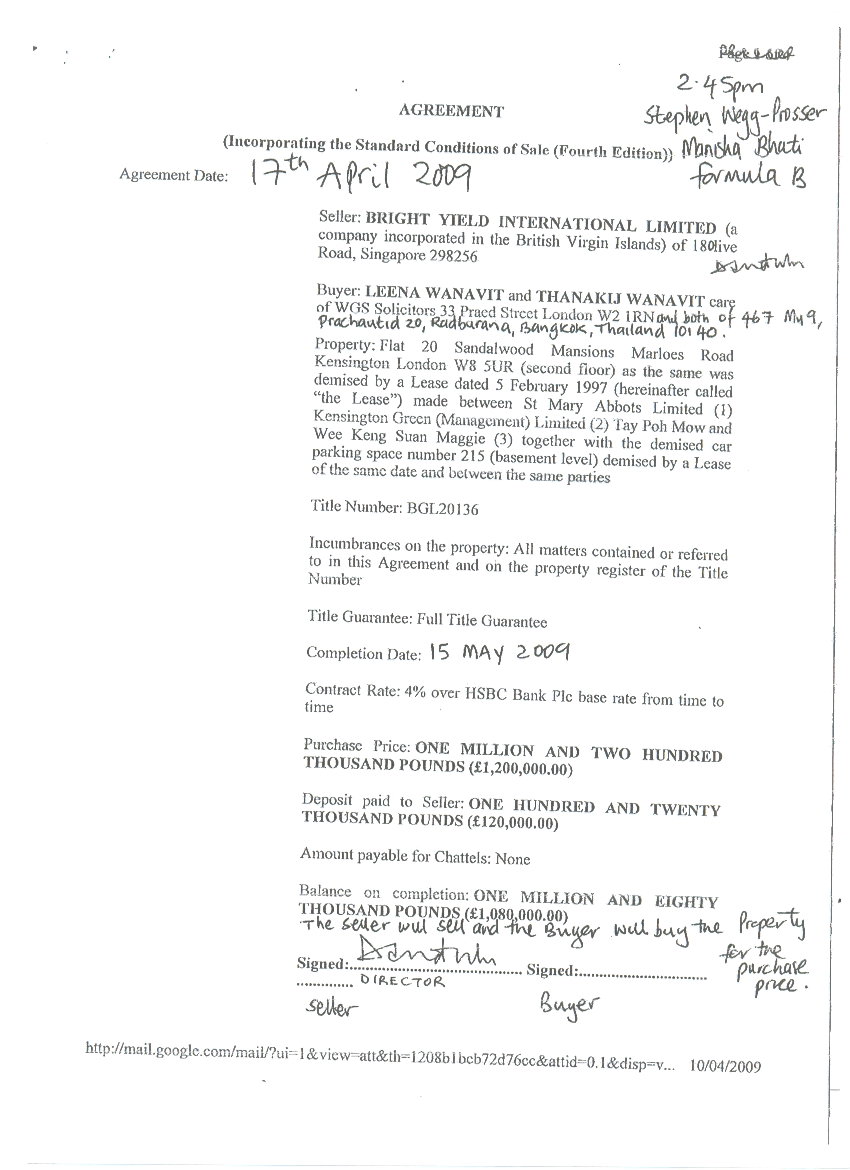 2.45pm
AGREEMENT
Stephen Wegg-Prosser
(Incorporating the Standard Conditions of Sale (Fourth Edition)) Manisha Bhati
Agreement Date: 17th April 2009
formula B
Seller: BRIGHT YIELD INTERNATIONAL LIMITED (a
company incorporated in the British Virgin Islands) of 18Olive
Road, Singapore 298256
Buyer: LEENA WANAVIT and THANAKIJ WANAVIT care
of WGS Solicitors 33 Praed Street London W2 1RN and both of 467 My9,
Prachautid 20, Radburana, Bangkok, Thailand 10140.
Property: Flat 20 Sandalwood Mansions Marloes Road
Kensington London W8 5UR (second floor) as the same was
demised by a Lease dated 5 February 1997 (hereinafter called
"the Lease") made between St Mary Abbots Limited (1)
Kensington Green (Management) Limited (2) Tay Poh Mow and
Wee Keng Suan Maggie (3) together with the demised car
parking space number 215 (basement level) demised by a Lease
of the same date and between the same parties
Title Number: BGL20136
Incumbrances on the property: All matters contained or referred
to in this Agreement and on the property register of the Title
Number
Title Guarantee: Full Title Guarantee
Completion Date: 15 MAY 2009
Contract Rate: 4% over HSBC Bank Plc base rate from time to
time
Purchase Price: ONE MILLION AND TWO HUNDRED
THOUSAND POUNDS (£1,200,000.00)
Deposit paid to Seller: ONE HUNDRED AND TWENTY
THOUSAND POUNDS (£120,000.00)
Amount payable for Chattels: None
Balance on completion: ONE MILLION AND EIGHTY
THOUSAND POUNDS (£1,080,000.00)
The seller will sell and the Buyer will buy the Property
for the
purchase
price.
Signed:.................................... Signed:...........................
.............. DIRECTOR
seller Buyer
http://mail.google.com/mail/?ui=1&view=att&th=1208b1bcb72d76cc&attid=0.1&disp=v... 10/04/2009